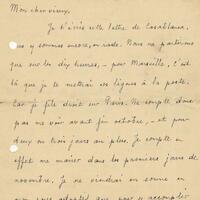 Mon cher vieux,
Je t'écris cette lettre de Casablanca,
nous y sommes encore, en rade. Nous ne partirons
que sur les dix heures, — pour Marseille, c'est
là que je te mettrai ces lignes à la poste.
Car je file droit sur Paris. Ne compte donc
pas me voir avant fin octobre, — et pour
deux ou trois jours au plus. Je compte en
effet me marier dans les premiers jours de
novembre. Je ne viendrai en somme en
que pour y accomplir